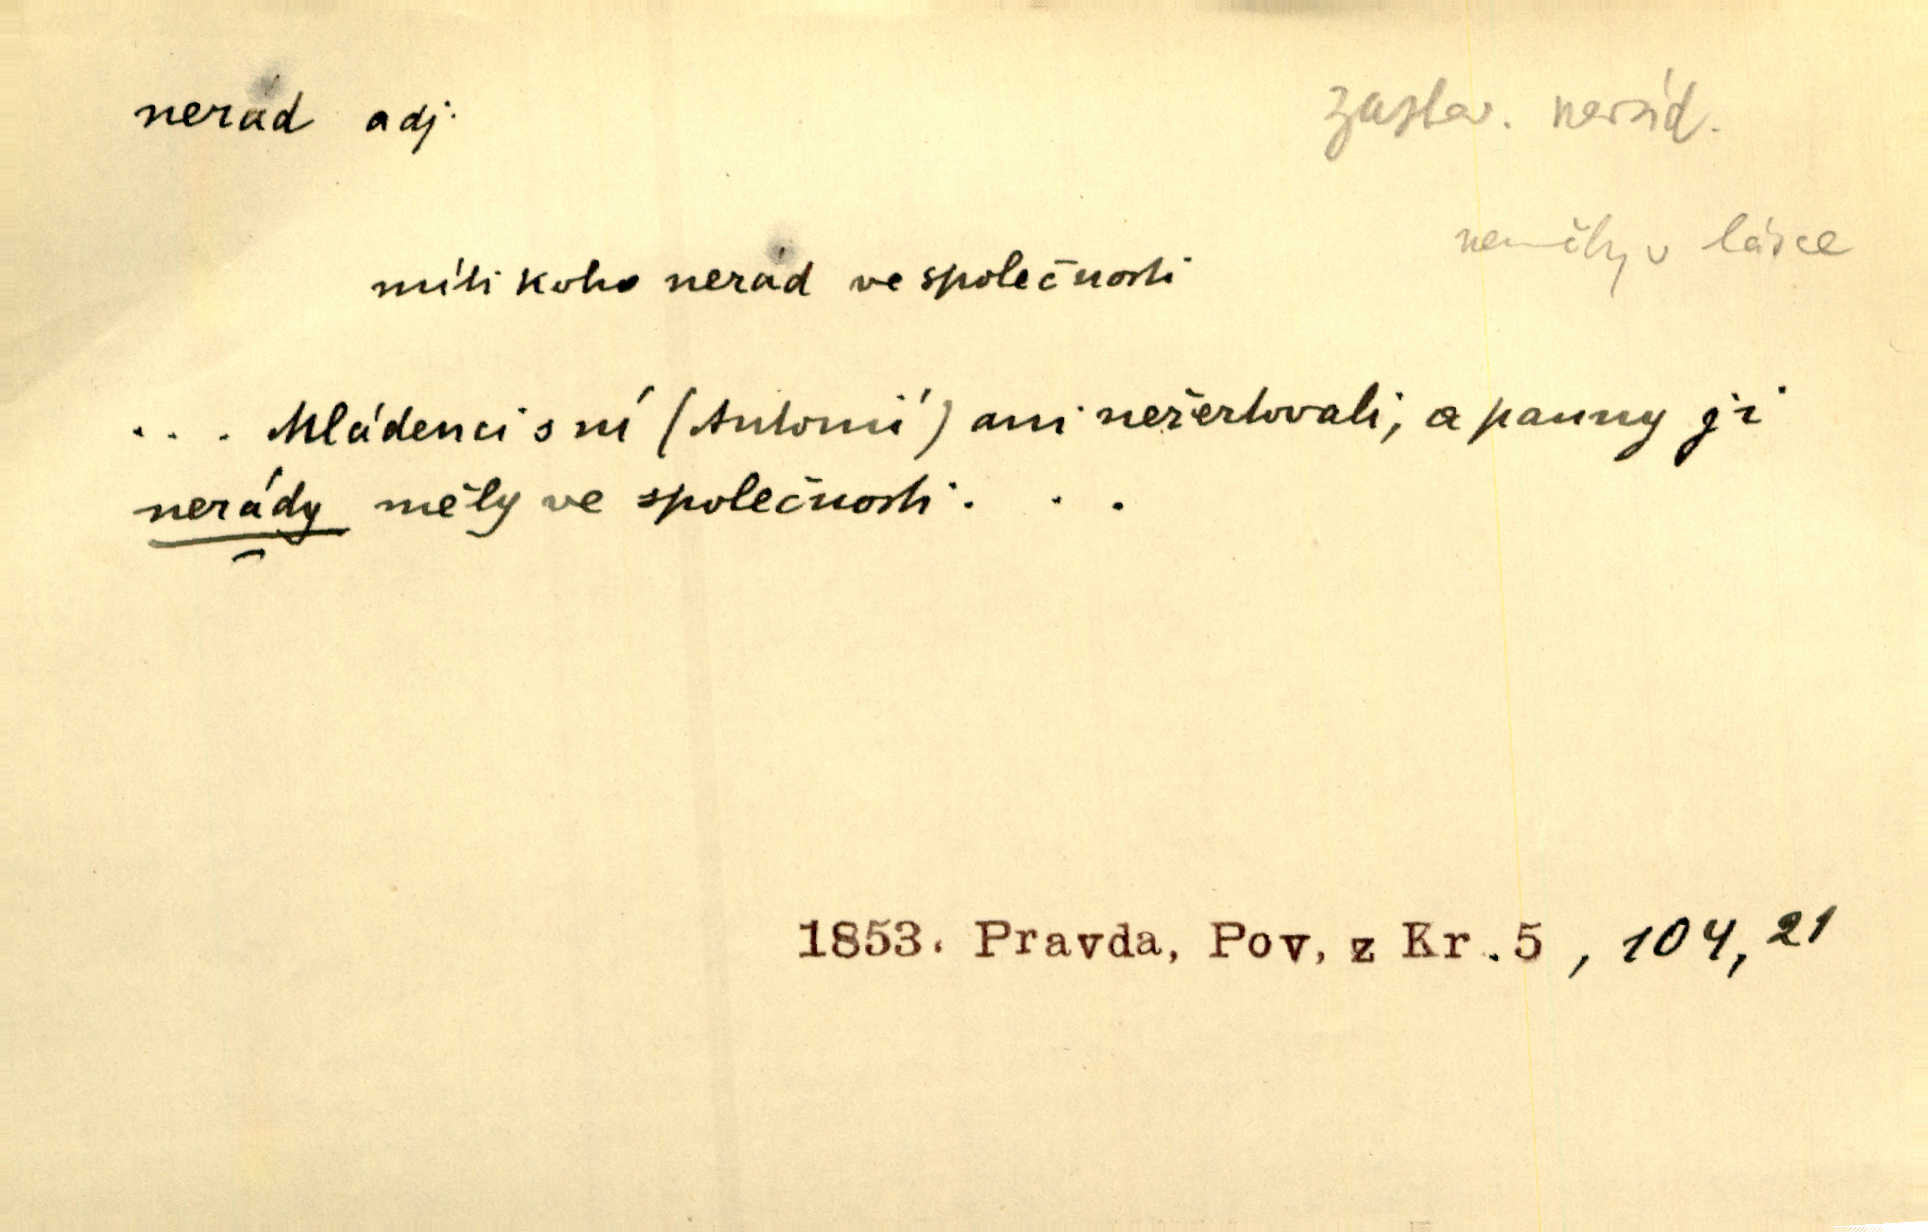 nerad adj.
zastar. nerád.
neměly v lásce
míti koho nerad ve společnosti
. . . Mládenci s ní (Antonií) ani nežertovali, a panny ji
nerády měly ve společnosti. . .
1853. Pravda, Pov, z Kr. 5 , 104, 21